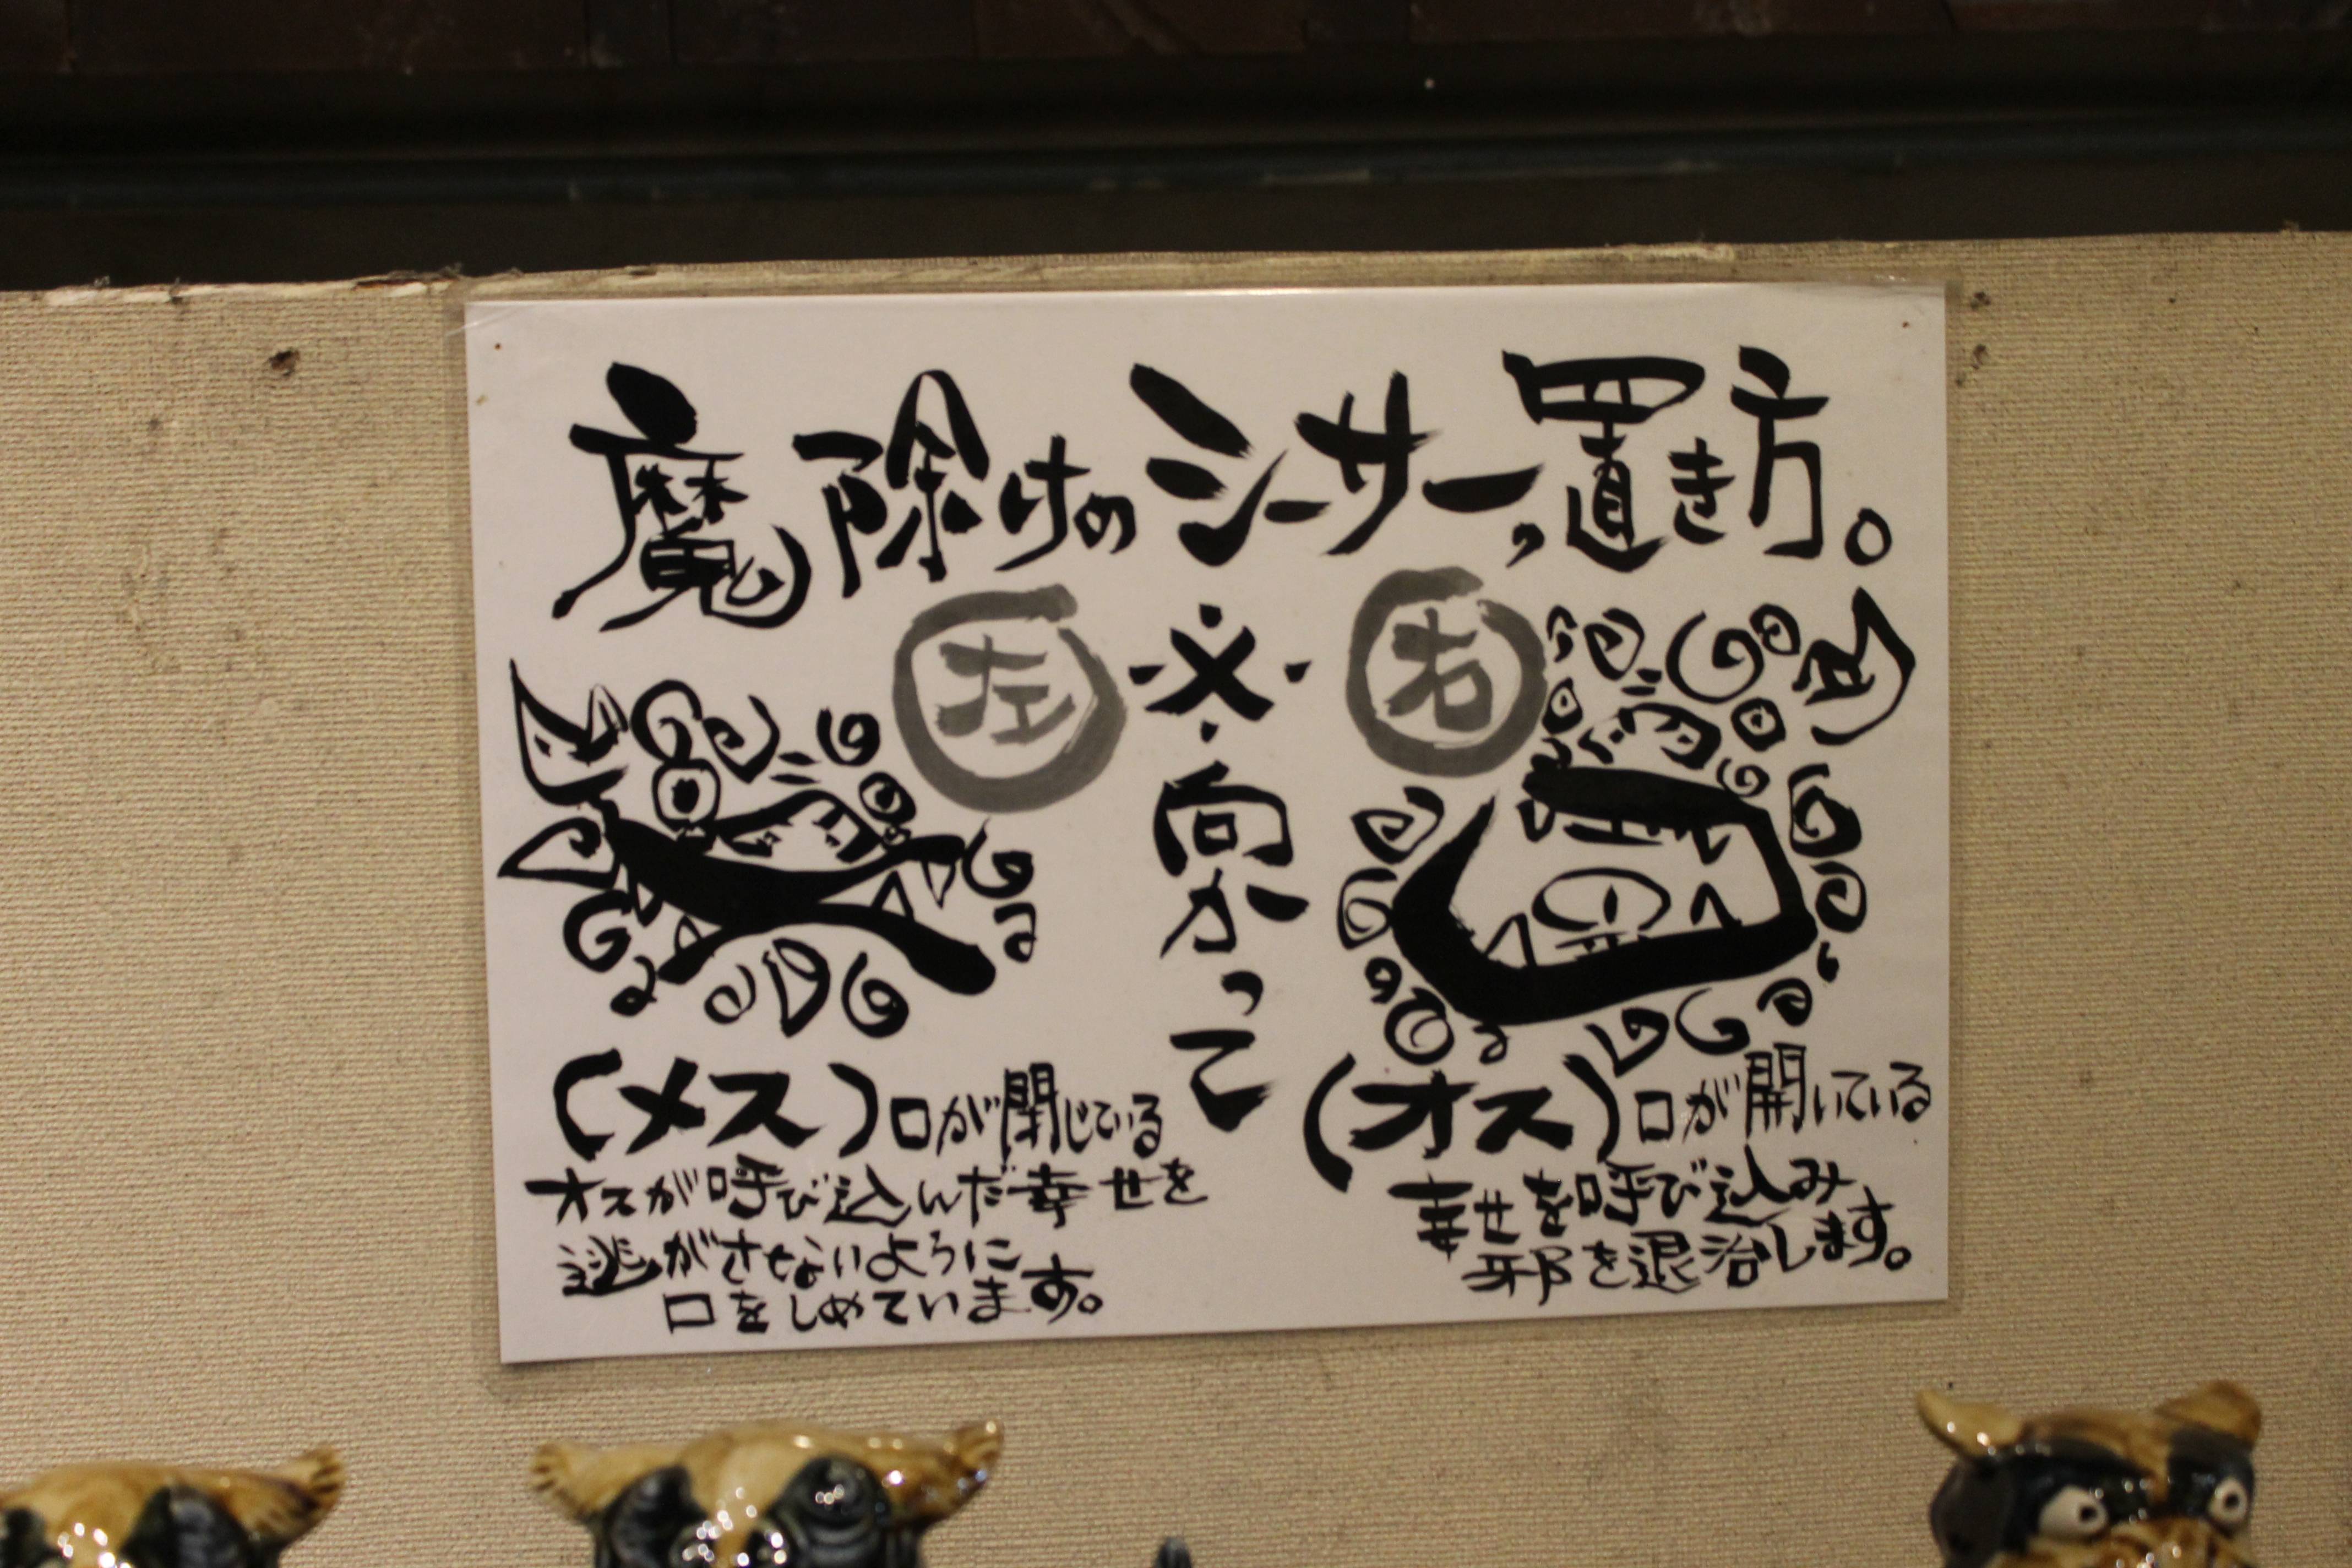 魔除けのシーサー、置き方。
※向かって
左
右
(メス)口が閉じている
オスが呼び込んだ幸せを
逃がさせないように
口をしめています。
(オス)口が開いている
幸せを呼び込み
邪を退治します。